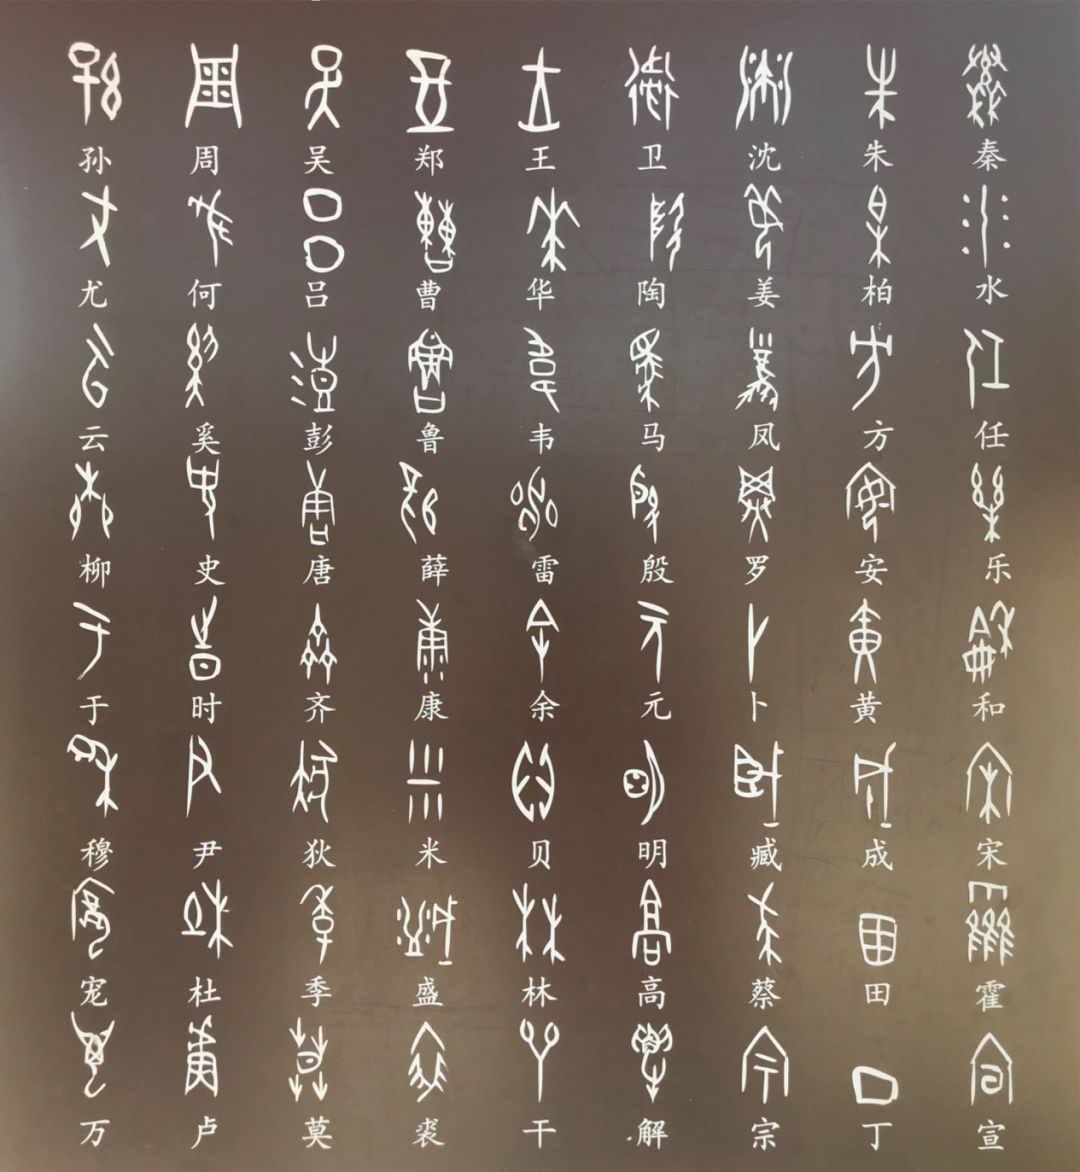 孙 周 吴 郑 王 卫 沈 朱 秦
尤 何 吕 曹 华 陶 姜 柏 水
云 奚 彭 鲁 韦 马 凤 方 任
柳 史 唐 薛 雷 殷 罗 安 乐
于 时 齐 康 余 元 卜 黄 和
穆 尹 狄 米 贝 明 臧 成 宋
宠 杜 季 盛 林 高 蔡 田 霍
万 卢 莫 裘 干 解 宗 丁 宣